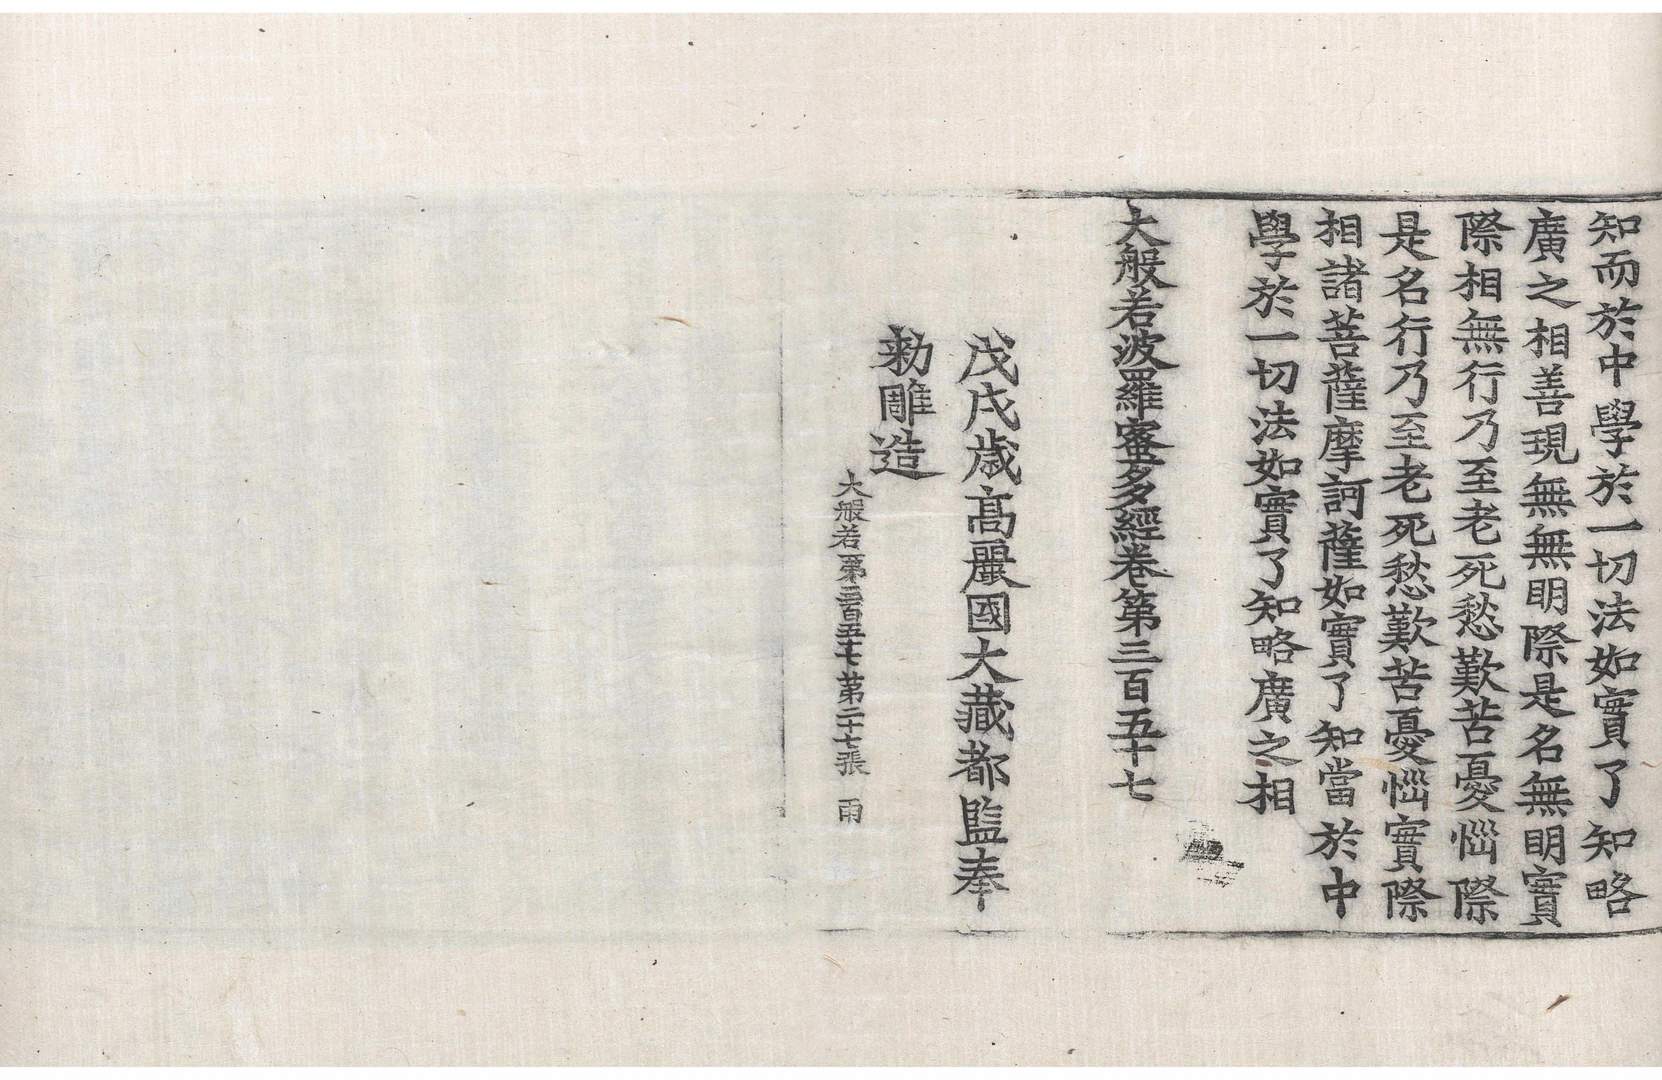 知而於中學於一切法如實了知略
廣之相善現無無明際是名無明實
際相無行乃至老死愁歎苦憂惱際
是名行乃至老死愁歎苦憂惱實際
相諸菩薩摩訶薩如實了知當於中
學於一切法如實了知略廣之相
大般若波羅蜜多經卷第三百五十七
戊戌歲高麗國大藏都監奉
勅雕造
大般若第三百五十七第二十七張 雨